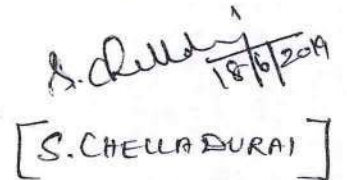 S. Chelladurai
18/6/2019
[S. CHELLADURAI]